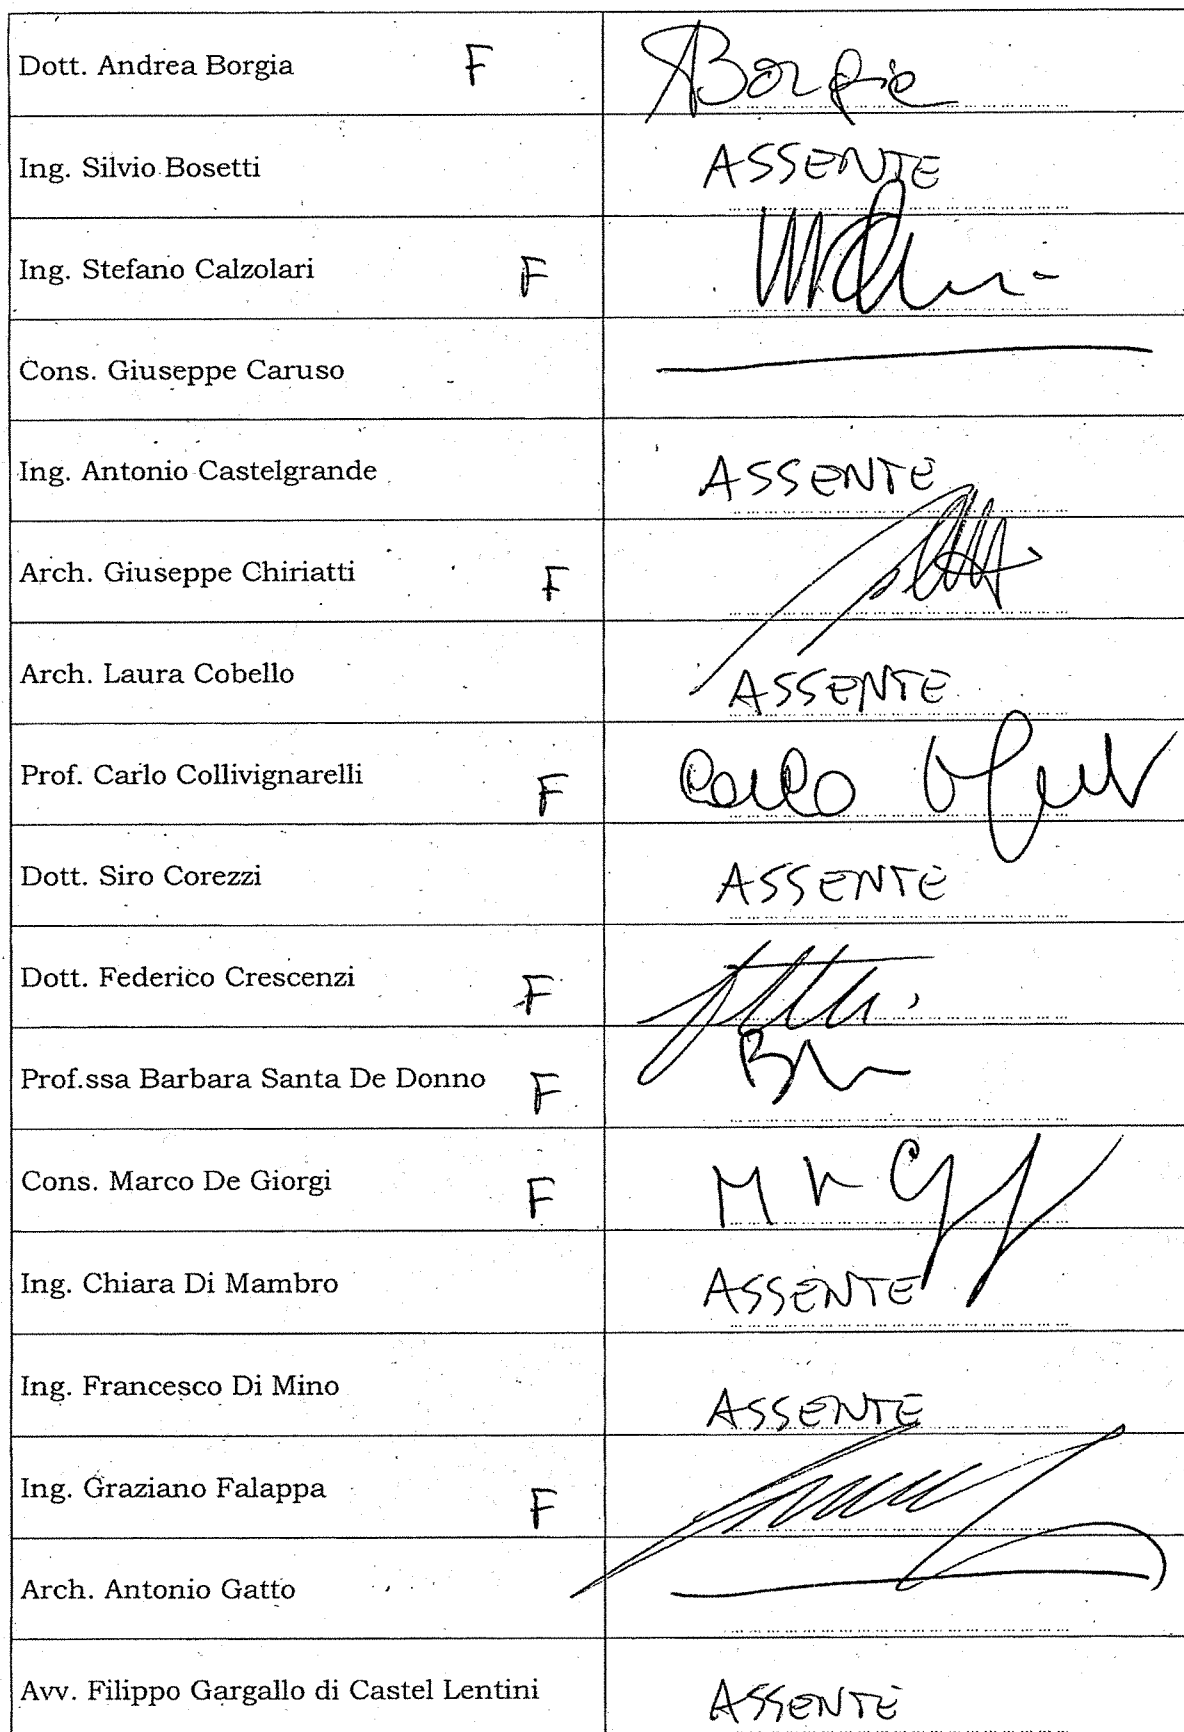 Dott. Andrea Borgia F ABorgia
Ing. Silvio Bosetti ASSENTE
Ing. Stefano Calzolari F
Cons. Giuseppe Caruso
Ing. Antonio Castelgrande ASSENTE
Arch. Giuseppe Chiriatti F
Arch. Laura Cobello ASSENTE
Prof. Carlo Collivignarelli F Carlo
Dott. Siro Corezzi ASSENTE
Dott. Federico Crescenzi F
Prof.ssa Barbara Santa De Donno F
Cons. Marco De Giorgi F
Ing. Chiara Di Mambro ASSENTE
Ing. Francesco Di Mino ASSENTE
Ing. Graziano Falappa F
Arch. Antonio Gatto
Avv. Filippo Gargallo di Castel Lentini ASSENTE